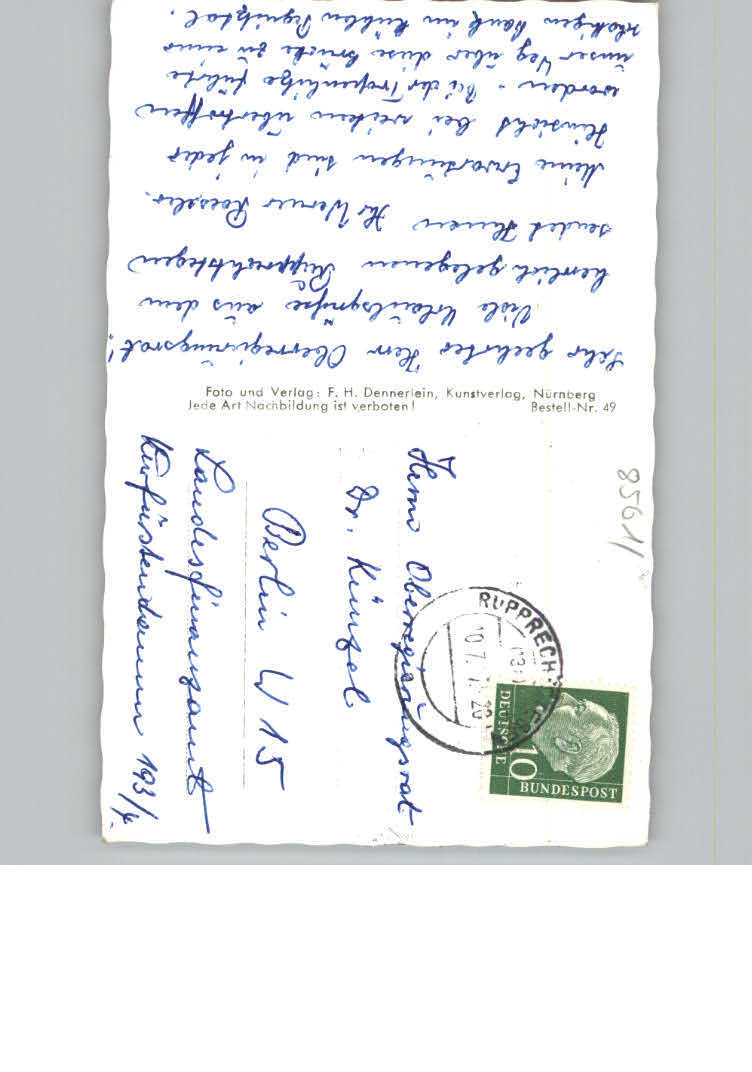 Sehr geehrter Herr Oberregierungsrat!
Viele Urlaubsgrüße aus dem
herrlich gelegenen Rupprechtstegen
sendet Ihnen Ihr Werner Roessler.
Meine Erwartungen sind in jeder
Hinsicht bei weitem übertroffen
worden. Bei der Tropenhitze führte
unser Weg über diese Brücke zu einer
schattigen Bank im kühlen Pegnitztal.
Foto und Verlag: F. H. Dennerlein, Kunstverlag, Nürnberg
Jede Art Nachbildung ist verboten! Bestell-Nr. 49
8561/
RUPPRECHTSTEGEN
10.7.
DEUTSCHE
BUNDESPOST
10
Herrn Oberregierungsrat
Dr. Künzel
Berlin W 15
Landesfinanzamt
Kurfürstendamm 193/4.